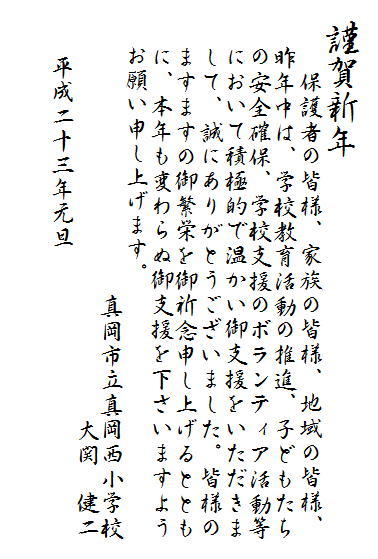 謹賀新年
保護者の皆様、家族の皆様、地域の皆様、
昨年中は、学校教育活動の推進、子どもたち
の安全確保、学校支援のボランティア活動等
において積極的で温かい御支援をいただきま
して、誠にありがとうございました。皆様の
ますますの御繁栄を御祈念申し上げるととも
に、本年も変わらぬ御支援を下さいますよう
お願い申し上げます。
平成二十三年元旦
真岡市立真岡西小学校
大関　健二